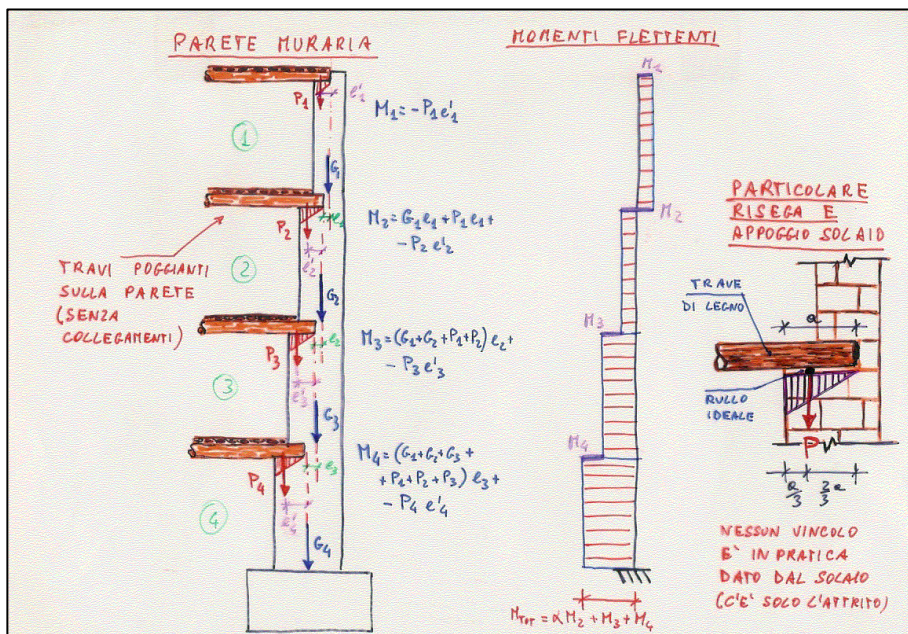 PARETE MURARIA
P1
e'1
M1=-P1e'1
1
G1
e1
P2
M2=G1e1+P1e1+
-P2e'2
e'2
2
TRAVI POGGIANTI
SULLA PARETE
(SENZA
COLLEGAMENTI)
G2
e2
P3
M3=(G1+G2+P1+P2)e2+
-P3e'3
e'3
3
G3
e3
P4
M4=(G1+G2+G3+
+P1+P2+P3)e3+
-P4e'4
e'4
4
G4
MOMENTI FLETTENTI
M1
M2
M3
M4
MTOT=αM2+M3+M4
PARTICOLARE
RISEGA E
APPOGGIO SOLAIO
TRAVE
DI LEGNO
a
RULLO
IDEALE
P
a/3 2/3 a
NESSUN VINCOLO
E' IN PRATICA
DATO DAL SOLAIO
(C'E' SOLO L'ATTRITO)